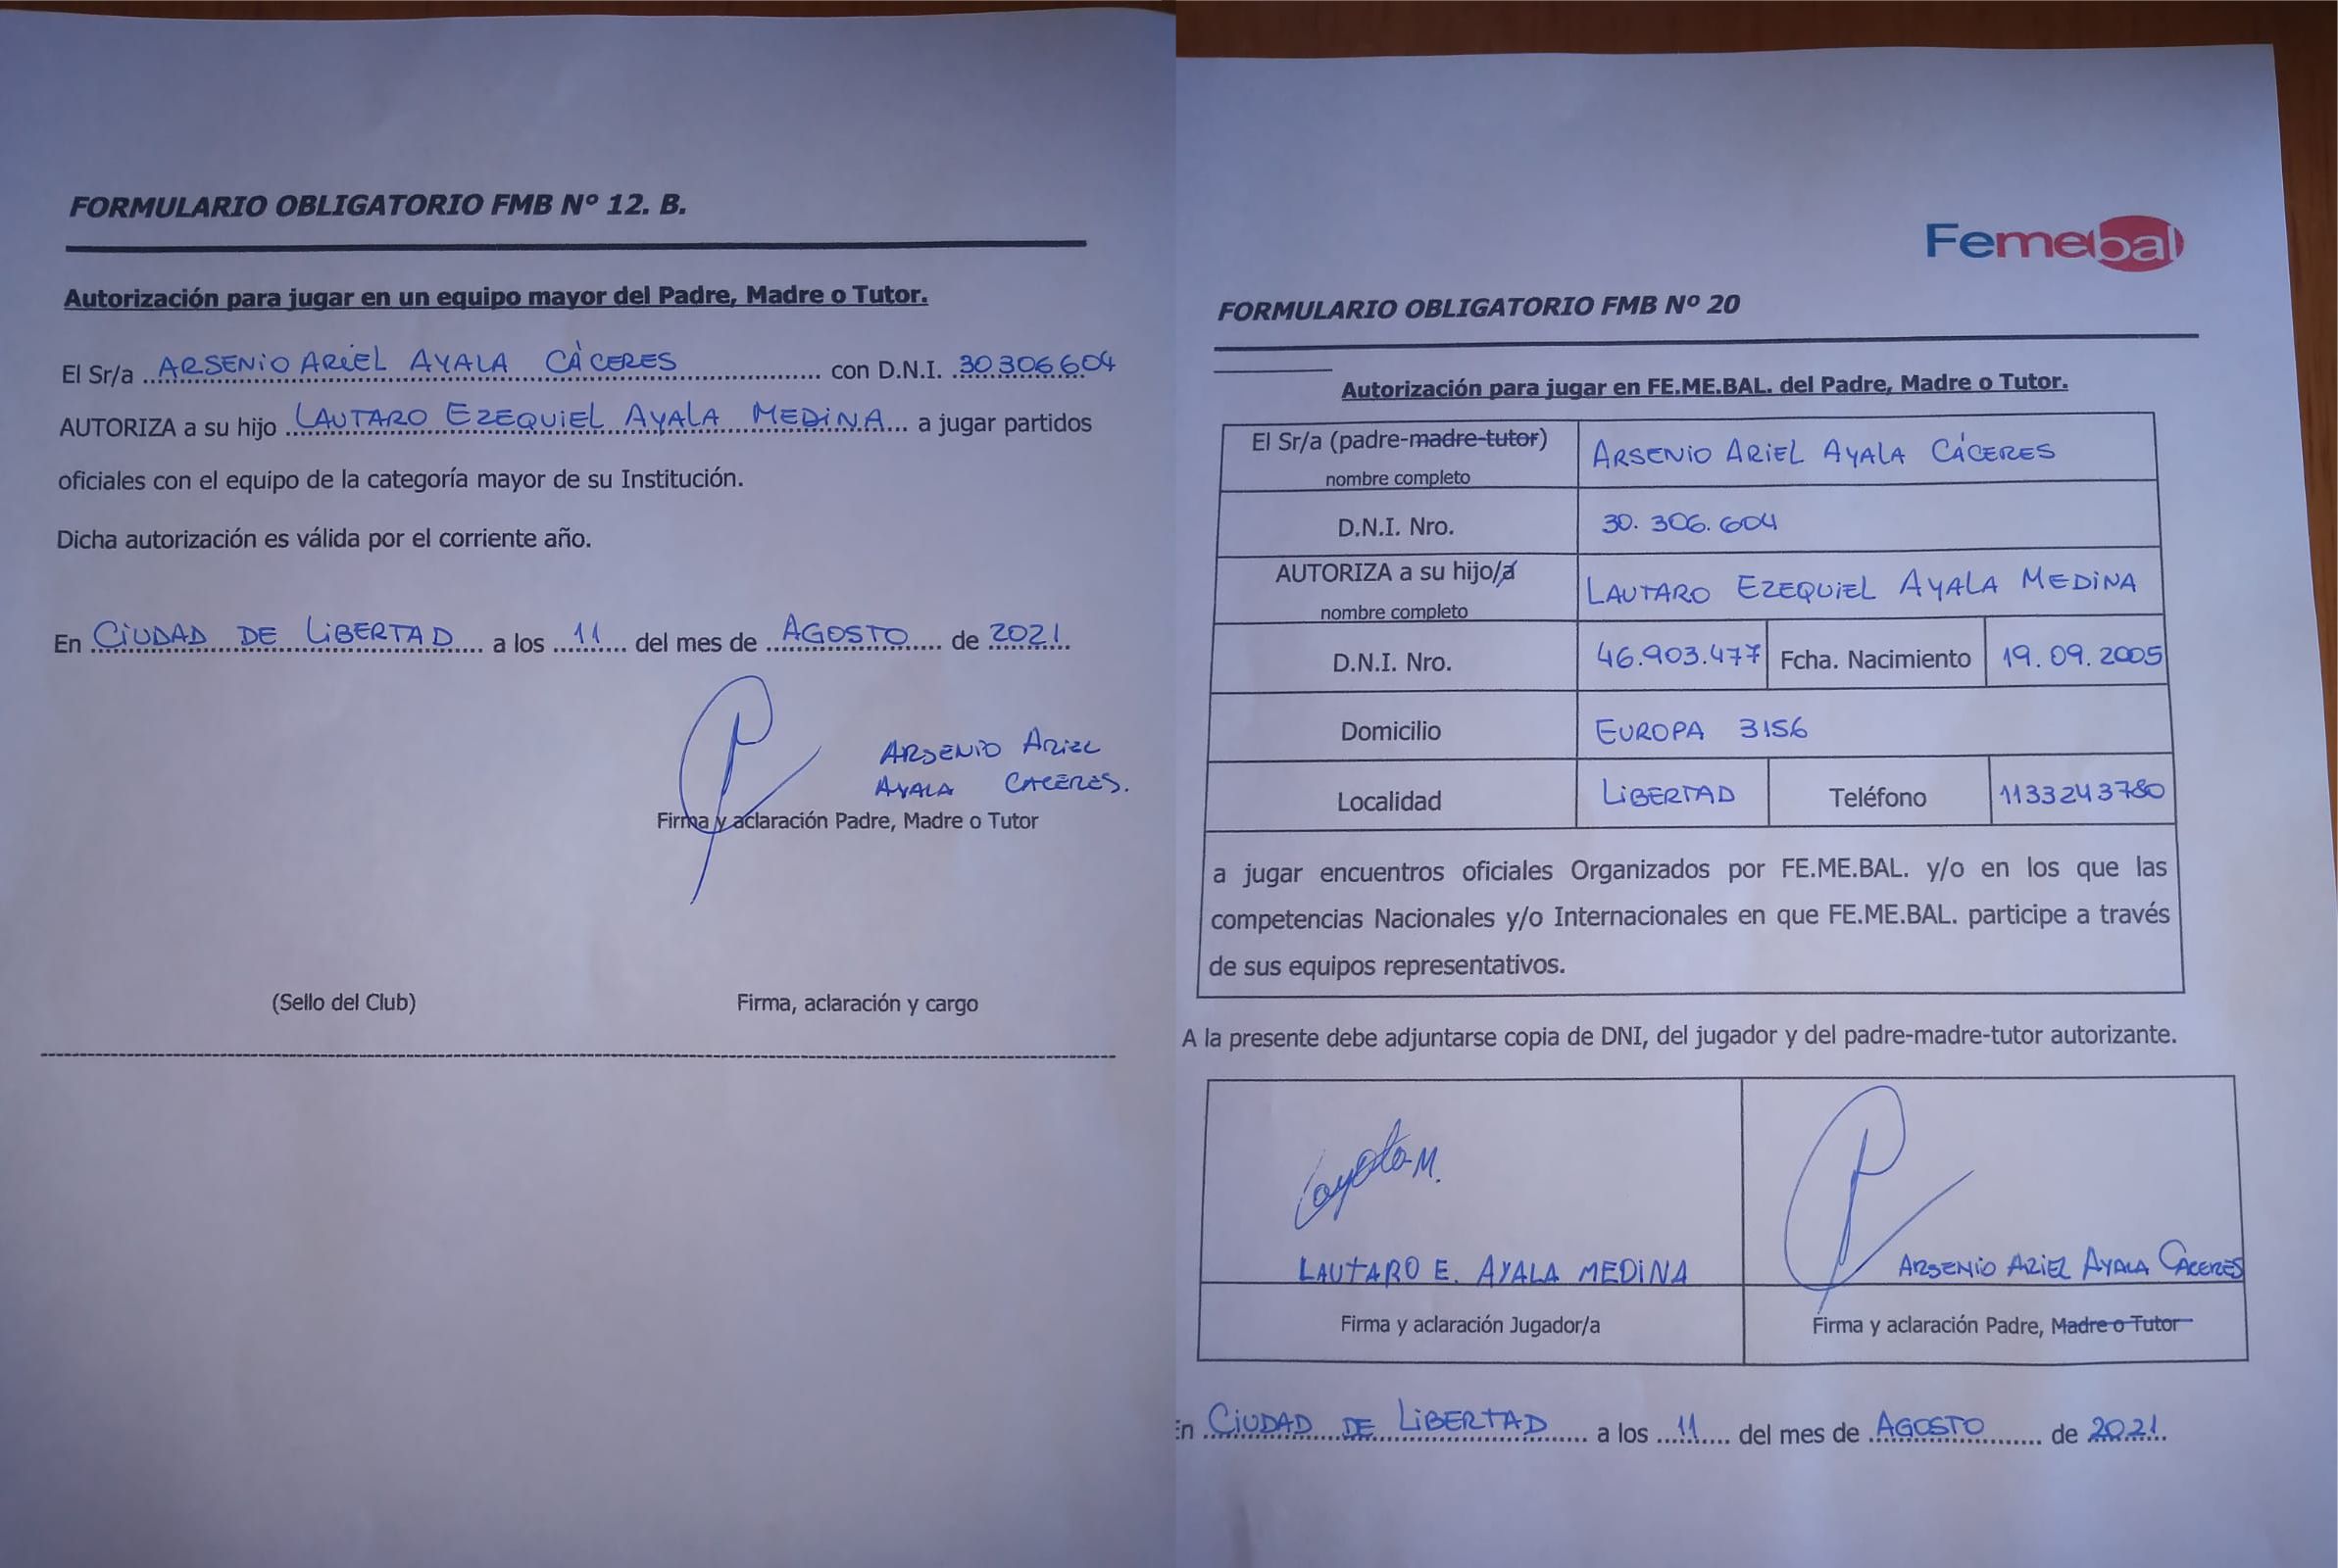 FORMULARIO OBLIGATORIO FMB Nº 12. B.
Autorización para jugar en un equipo mayor del Padre, Madre o Tutor.
El Sr/a ARSENIO ARIEL AYALA CÁCERES con D.N.I. 30.306.604
AUTORIZA a su hijo LAUTARO EZEQUIEL AYALA MEDINA a jugar partidos
oficiales con el equipo de la categoría mayor de su Institución.
Dicha autorización es válida por el corriente año.
En CIUDAD DE LIBERTAD a los 11 del mes de AGOSTO de 2021.
ARSENIO ARIEL
AYALA CACERES.
Firma y aclaración Padre, Madre o Tutor
(Sello del Club) Firma, aclaración y cargo
Femebal
FORMULARIO OBLIGATORIO FMB Nº 20
Autorización para jugar en FE.ME.BAL. del Padre, Madre o Tutor.
El Sr/a (padre-madre-tutor) ARSENIO ARIEL AYALA CÁCERES
nombre completo
D.N.I. Nro. 30.306.604
AUTORIZA a su hijo/a LAUTARO EZEQUIEL AYALA MEDINA
nombre completo
D.N.I. Nro. 46.903.477 Fcha. Nacimiento 19.09.2005
Domicilio EUROPA 3156
Localidad LIBERTAD Teléfono 1133243780
a jugar encuentros oficiales Organizados por FE.ME.BAL. y/o en los que las
competencias Nacionales y/o Internacionales en que FE.ME.BAL. participe a través
de sus equipos representativos.
A la presente debe adjuntarse copia de DNI, del jugador y del padre-madre-tutor autorizante.
LAUTARO E. AYALA MEDINA ARSENIO ARIEL AYALA CACERES
Firma y aclaración Jugador/a Firma y aclaración Padre, Madre o Tutor
En CIUDAD DE LIBERTAD a los 11 del mes de AGOSTO de 2021.